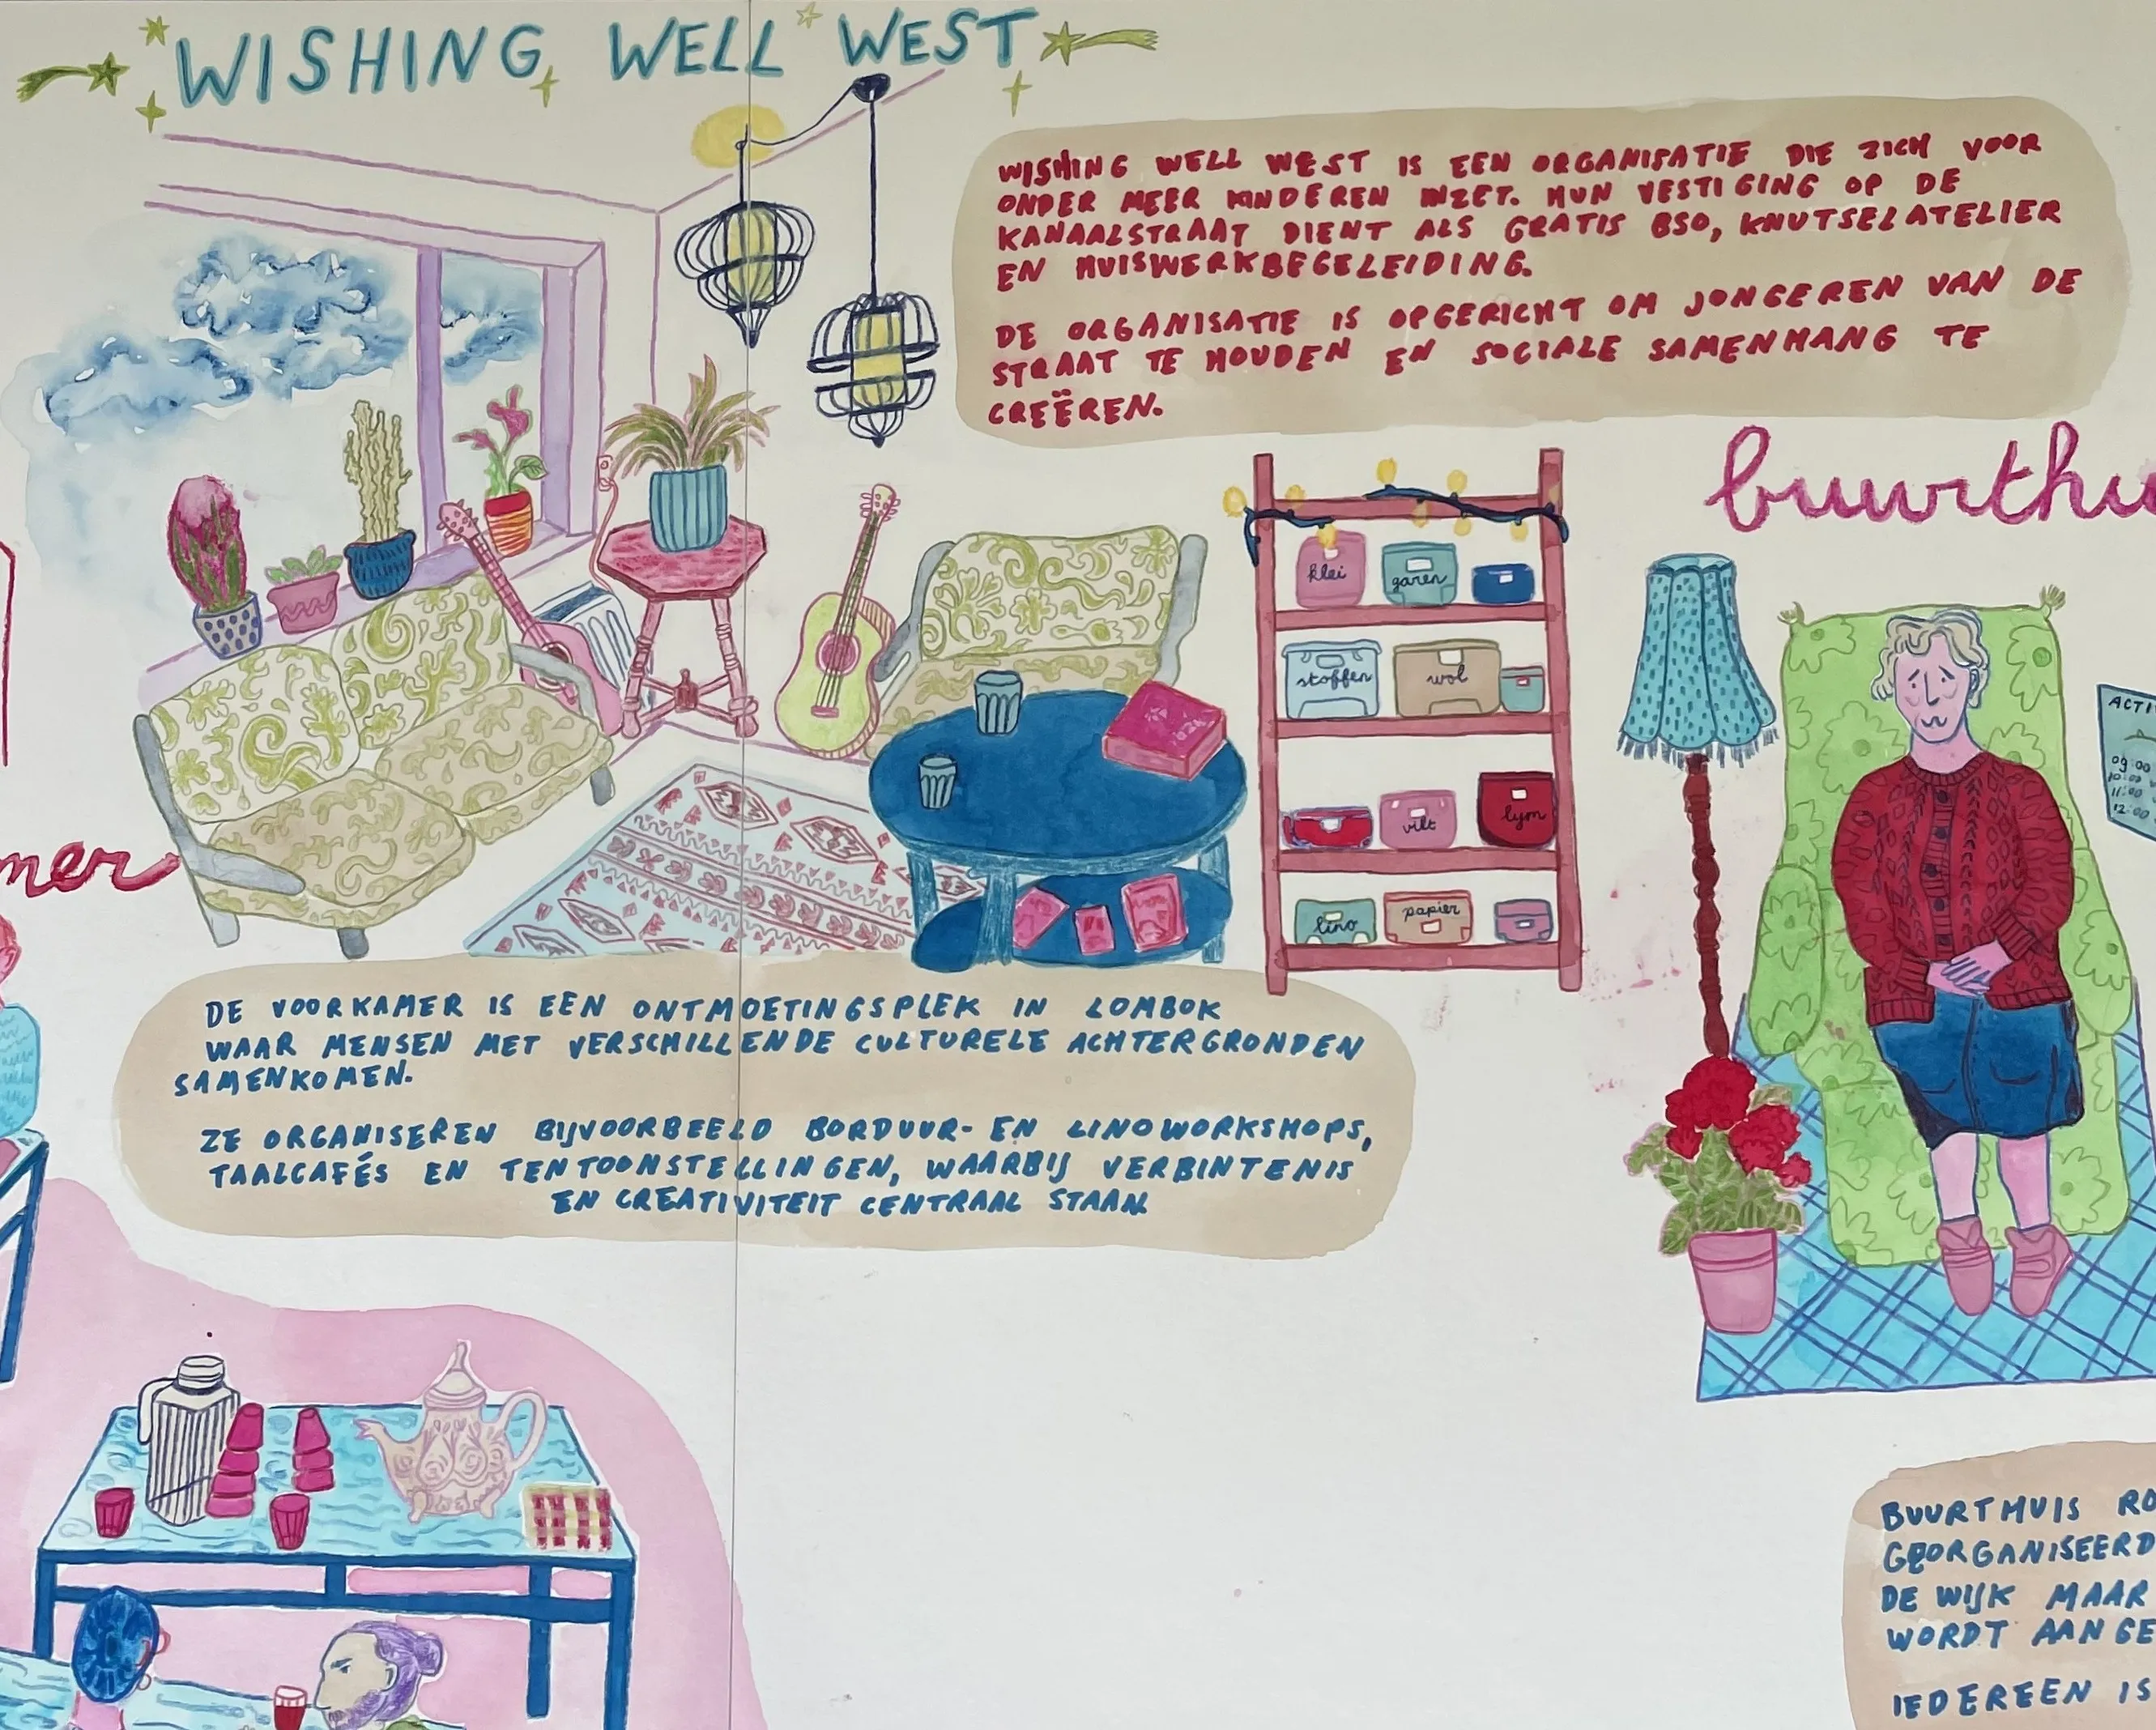 WISHING WELL WEST
WISHING WELL WEST IS EEN ORGANISATIE DIE ZICH VOOR
ONDER MEER KINDEREN INZET. HUN VESTIGING OP DE
KANAALSTRAAT DIENT ALS GRATIS BSO, KNUTSELATELIER
EN HUISWERKBEGELEIDING.
DE ORGANISATIE IS OPGERICHT OM JONGEREN VAN DE
STRAAT TE HOUDEN EN SOCIALE SAMENHANG TE
CREËREN.
buurthu
klei garen
stoffen wol
vilt lym
lino papier
ACTI
09:00
10:00
11:00
12:00
mer
DE VOORKAMER IS EEN ONTMOETINGSPLEK IN LOMBOK
WAAR MENSEN MET VERSCHILLENDE CULTURELE ACHTERGRONDEN
SAMENKOMEN.
ZE ORGANISEREN BIJVOORBEELD BORDUUR- EN LINOWORKSHOPS,
TAALCAFÉS EN TENTOONSTELLINGEN, WAARBIJ VERBINTENIS
EN CREATIVITEIT CENTRAAL STAAN.
BUURTHUIS RO
GEORGANISEERD
DE WIJK MAAR
WORDT AANGE
IEDEREEN IS